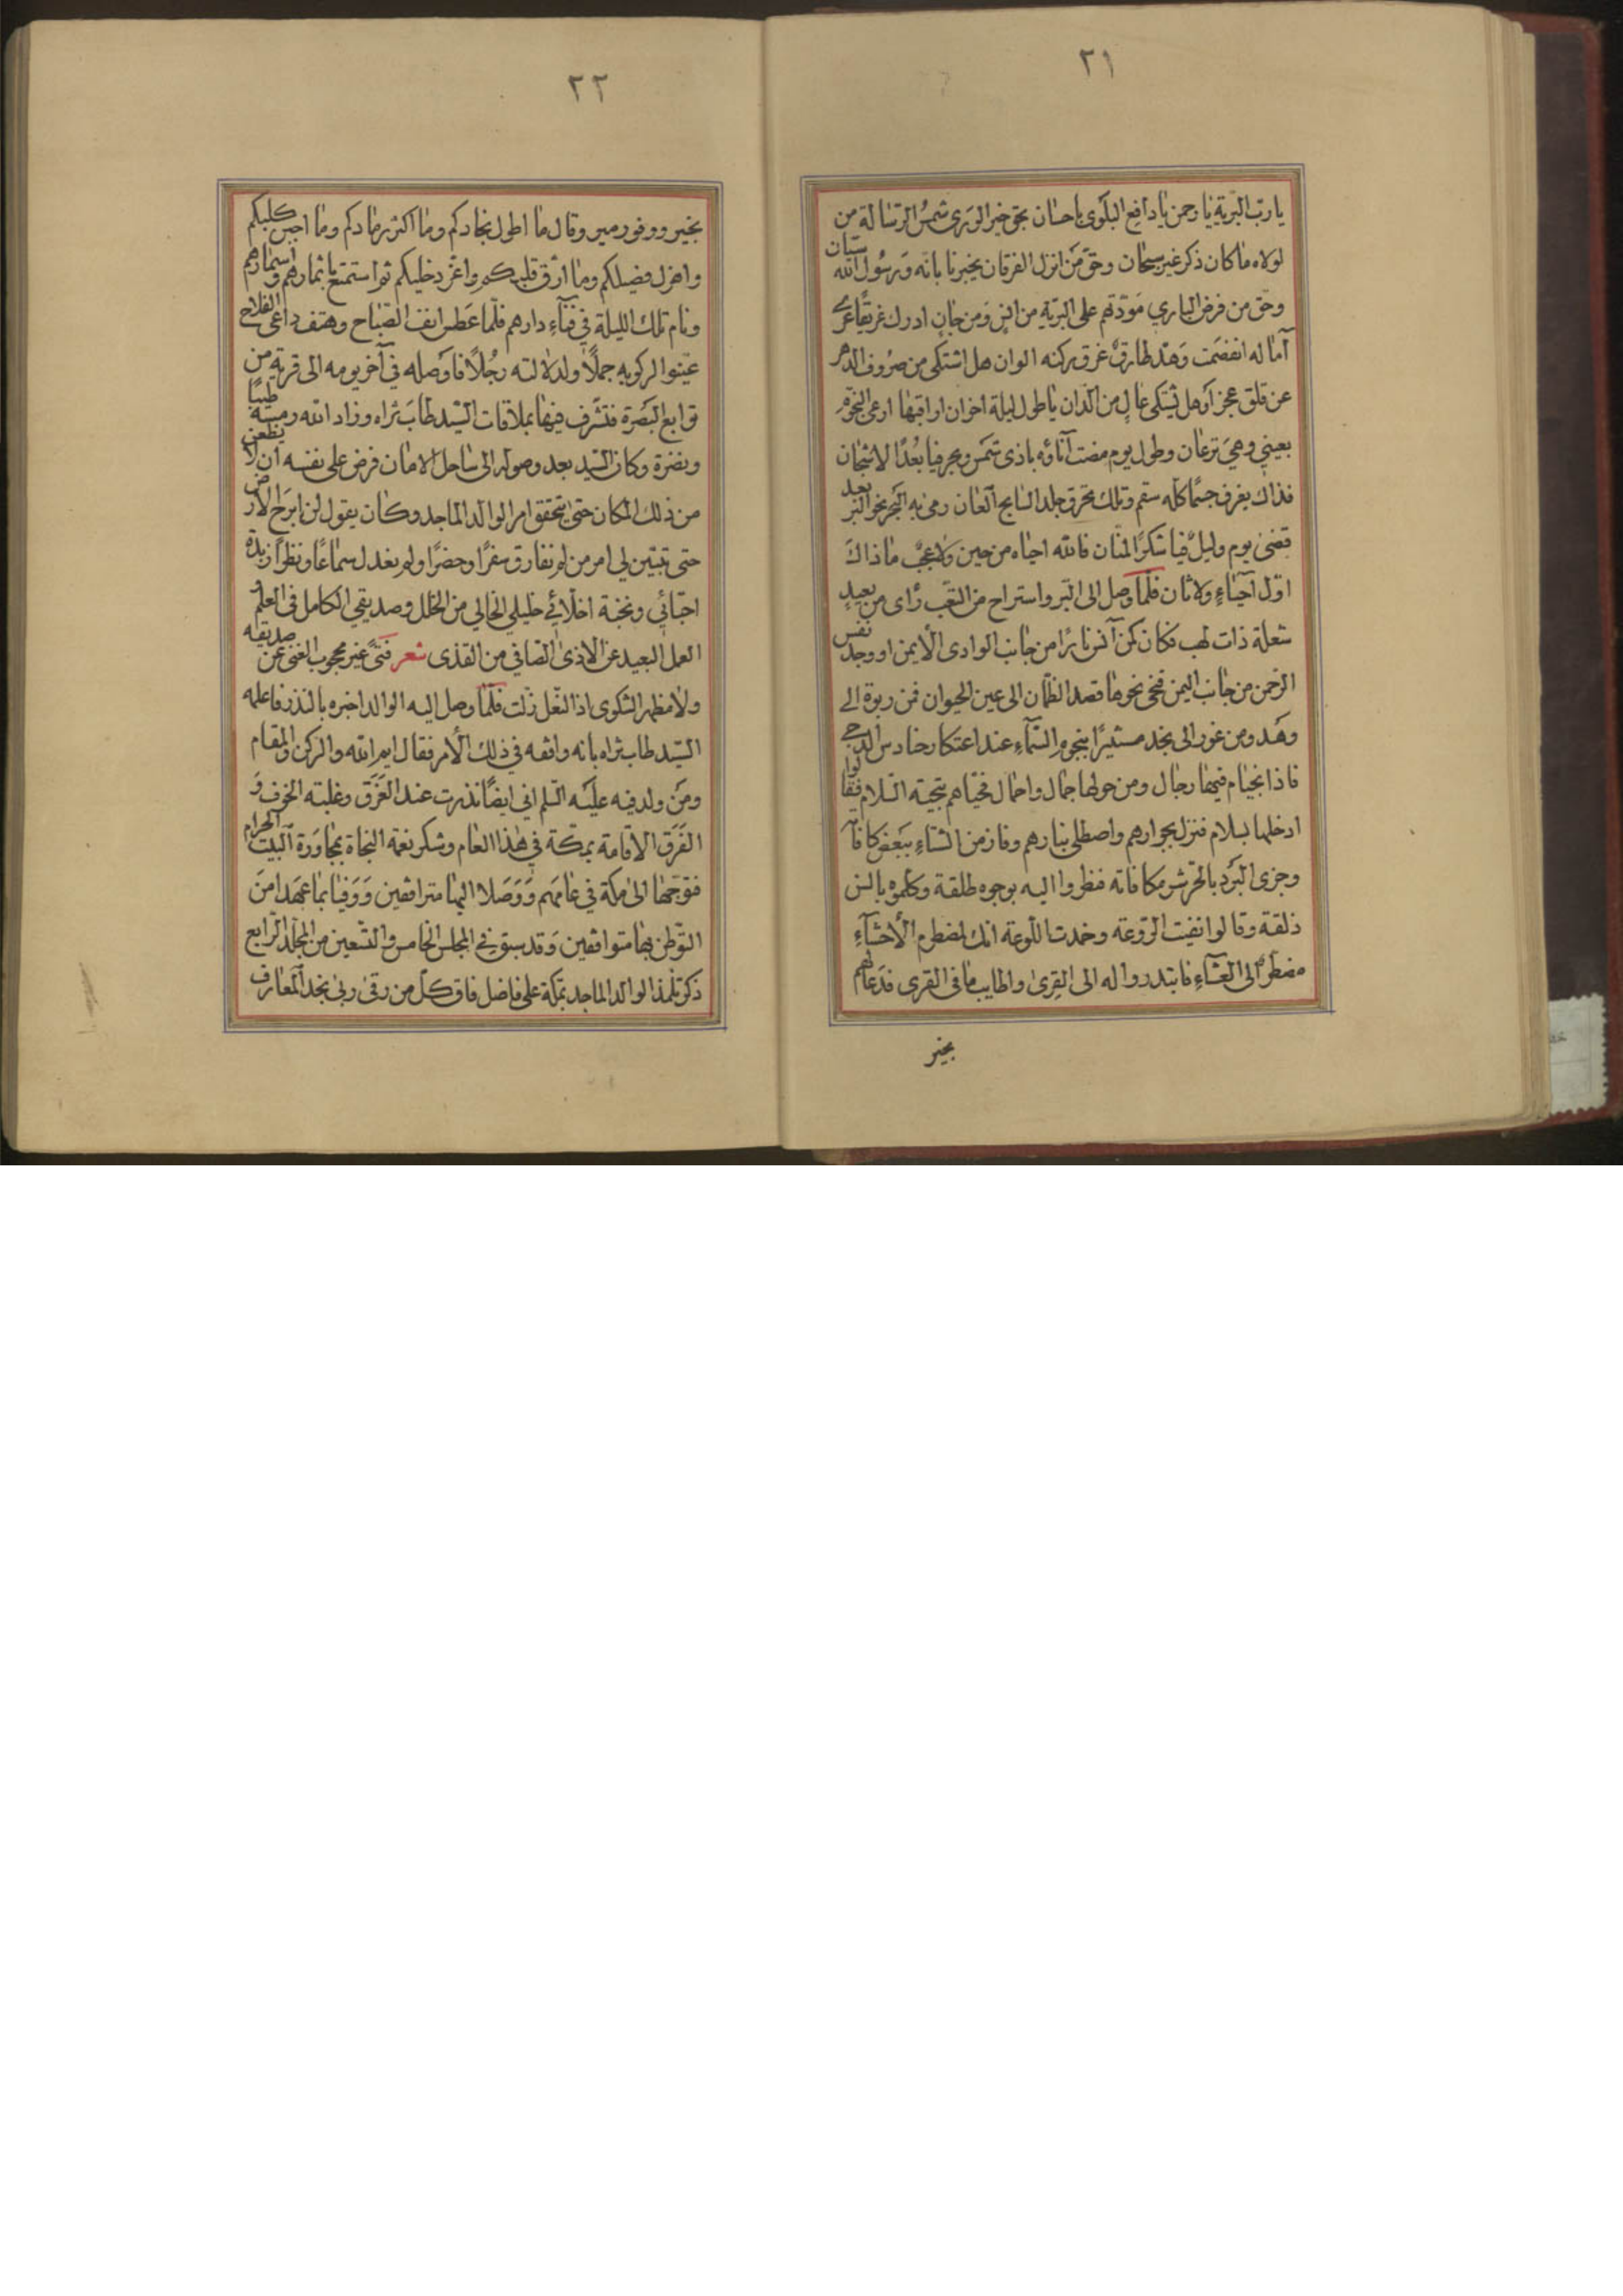 ٢١
يا ربّ البريّة يا رحمن يا دافع البلوى باحسان بحق خير الورى شمس الرسالة من
لولاه ما كان ذكر غير سيان وحق من انزل الفرقان يخبرنا بانه ورسول الله ستان
وحق من فرض الباري مودّتهم على البريّة من انس ومن جان ادرك غريقا عرى
آماله انفصمت وهدّ طارق غرق ركنه الوان هل اشتكى من صروف الدهر
عن قلق عجز او هل يشتكى عال من الدان يا طول ليلة اخزان اراقبها ارعى النجوم
بعيني وهي ترعان وطول يوم مضت آناؤه باذى شمس وبحر فيا بعدًا لاشجان
فذاك يغرف جسمًا كله سقم وتلك تحرق جلد السابح العان رمى به البحر نحو البر بعيد
قضى يوم وليل فيا شكرًا لمنان فالله احياه من حين ولا عجب ما ذاك
اول احياء ولا ثان فلما وصل الى البر واستراح من التعب رأى من بعيد
شعلة ذات لهب فكان كمن آنس نارًا من جانب الوادى الايمن او وجد نفس
الرحمن من جانب اليمن فنحى نحوها قصد الظمان الى عين الحيوان فمن ربوة الى
وهد ومن غور الى نجد مستنيرًا بنجوم السماء عند اعتكار حنادس الدجى
فاذا بخيام فيها رجال ومن حولها جمال واحمال فحياهم بتحية السلام فقالوا
ادخلها بسلام فنزل بجوارهم واصطلى بنارهم وفاز من الشتاء ببعض كافآ
وجزى البرد بالحر شر مكافاته فنظروا اليه بوجوه طلقة وكلموه بالسن
ذلقة وقالوا نفيت الروعة وخمدت اللوعة انك لمضطرم الاحشاء
مضطر الى العشاء فابتدروا له الى القرى واطايب ما فى القرى فدعا لهم
بخير
٢٢
بخير ووفور مير وقال ما اطول نجادكم وما اكثر رمادكم وما اجبن كلبكم
واهزل فصيلكم وما ارق قلبكم واعز دخيلكم ثم استمتع باثمارهم واسمارهم
ونام تلك الليلة في فناء دارهم فلما عطس انف الصباح وهتف داعى الفلاح
عينوا لركوبه جملًا ولدلالته رجلًا فاوصله في آخر يومه الى قرية من
توابع البصرة فتشرف فيها بملاقات السيد طاب ثراه وزاد الله رمسه طيبا
ونضرة وكان السيد بعد وصوله الى ساحل الامان فرض على نفسه ان لا يظعن
من ذلك المكان حتى يتحقق امر الوالد الماجد وكان يقول لن ابرح الارض
حتى تبين لي امر من لم نفارق سفرًا وحضرًا ولم يعدل سماعًا ونظرًا زبدة
احبائي ونخبة اخلائي خليلي الخالي من الخلل وصديقي الكامل فى العلم
العمل البعيد عن الاذى الصافي من القذى شعر فتى غير محجوب الغنى عن صديقه
ولا مظهر الشكوى اذا النعل زلت فلما وصل اليه الوالد اخبره بالنذر فاعلمه
السيد طاب ثراه بانه وافقه في ذلك الامر فقال ايم الله والركن والمقام
ومن ولد فيه عليه السلم اني ايضًا نذرت عند الغرق وغلبته الخوف و
الفرق الاقامة بمكة في هذا العام وشكر نعمة النجاة بمجاورة البيت الحرام
فتوجها الى مكة في عامهم ووصلا اليها مترافقين ووفيا بما عهدا من
التوطن بها متوافقين وقد سبق في المجلس الخامس والتسعين من المجلد الرابع
ذكر تلمذ الوالد الماجد بمكة على فاضل فاق كل من رقى ربى نجد المعارف